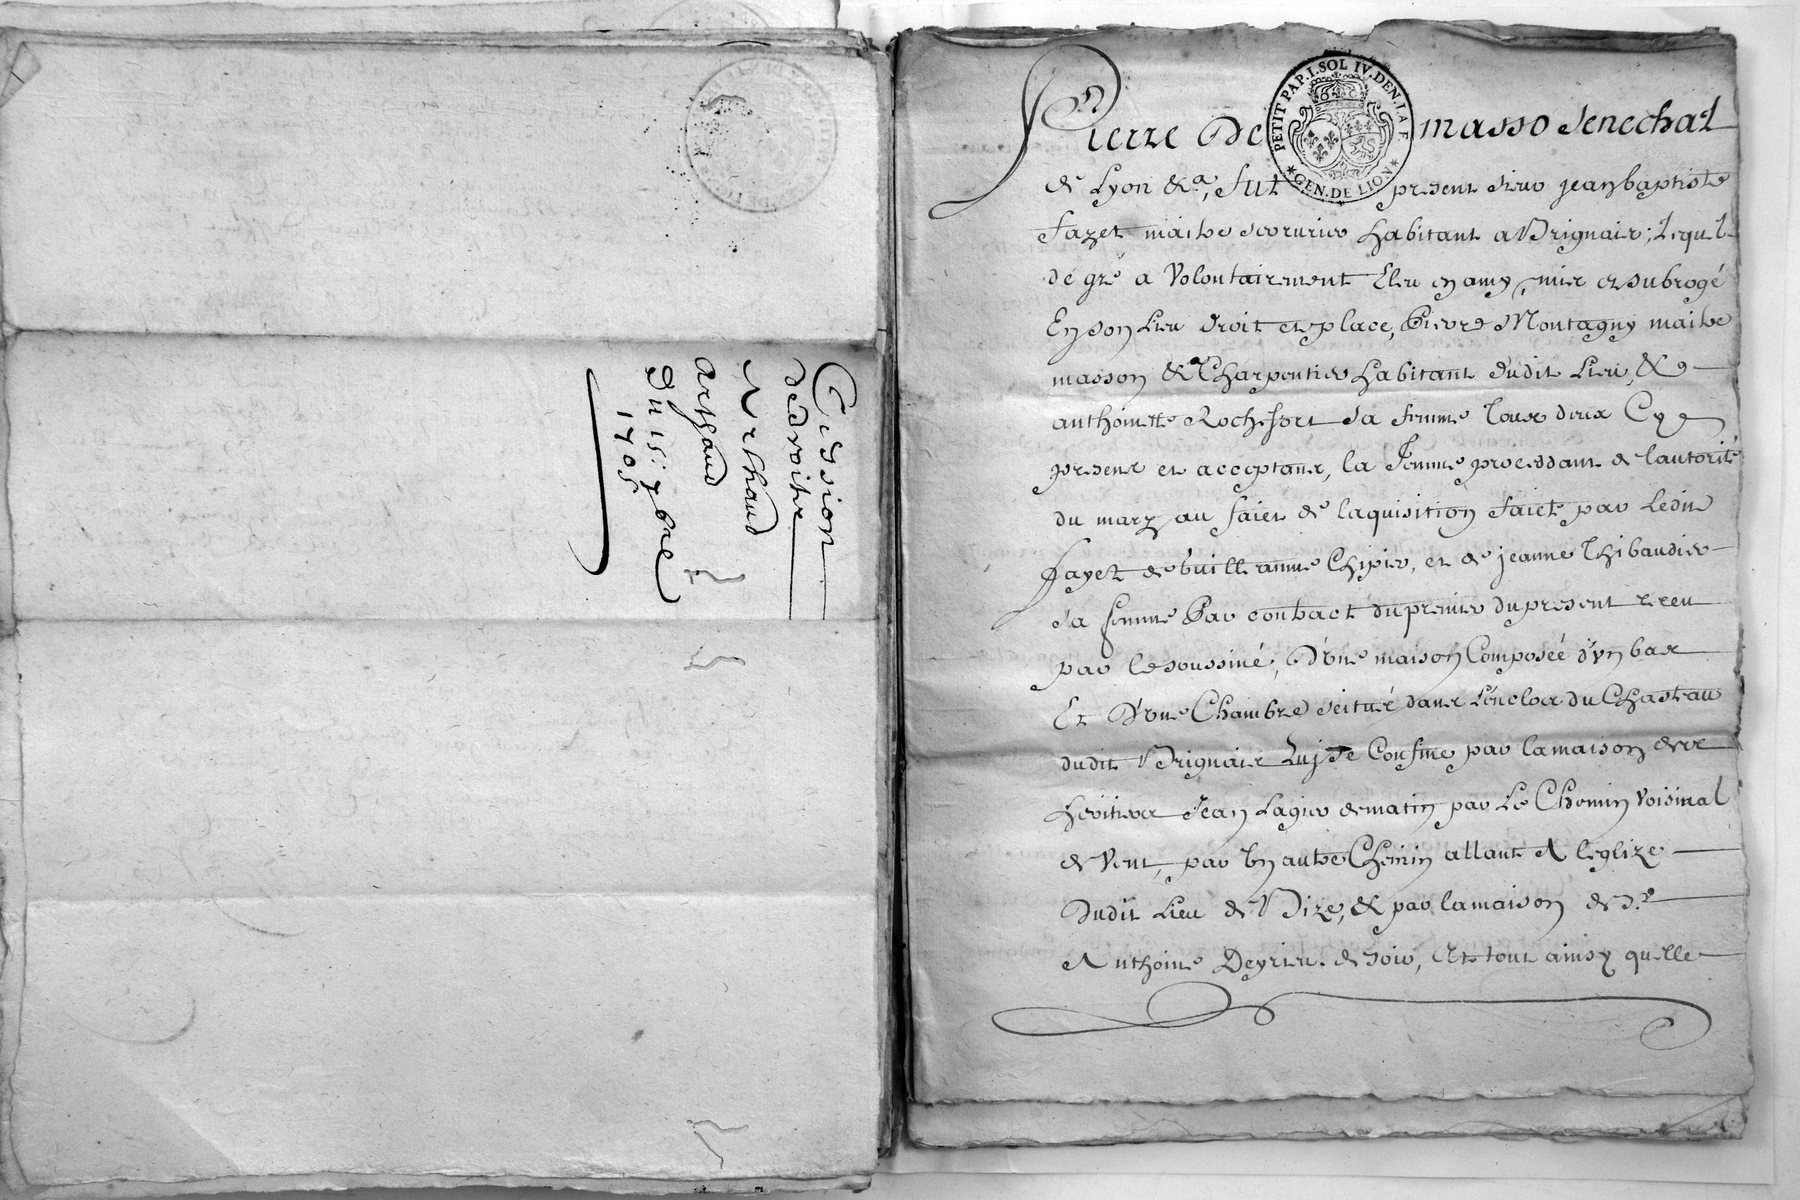 Cession
de droitz
Arthaud
Arthaud
Du 15: 9bre
1705
PETIT PAP. I. SOL IV. DEN. LA F.
GEN. DE LION
Pierre De masso senechal
de Lyon &a, fut present sieur jean baptiste
fayet maitre serrurier habitant a Brignais; Lequel
de gré a volontairement Eleu en amy, mis et subrogé
En son Lieu droit et place, Pierre Montagny maitre
masson & Charpentier habitant dudit Lieu, &
anthoinette Rochefort sa femme tous deux Cy
presens et acceptans, la femme procedant de lautorité
du mary au faict de laquisition faicte par Ledit
fayet de Guillaume Chipier, et de jeanne Thibaudier
sa femme Par contract du premier du present receu
par le soussiné, D'une maison Composéé d'un bas
Et D'une Chambre scitué dans L'enclos du Chasteau
dudit Brignais Qui se Confine par la maison des
heritiers Jean Lagier de matin par Le Chemin voisinal
de Vent, par Un autre Chemin allant A leglize
Dudit Lieu de Bize, & par la maison de sr
Anthoine Deyrieu de soir, Et tout ainsy quelle